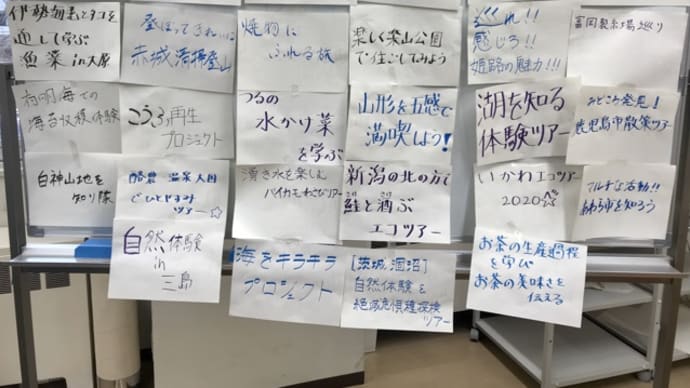 伊勢海老とタコを
通して学ぶ
漁業 in 大原
登ぼってきれいに
赤城清掃登山
焼物に
ふれる旅
楽しく楽山公園
で住ごしてみよう
巡れ!!
感じろ!!
姫路の魅力!!!
富岡製糸場巡り
有明海での
海苔収穫体験
こうふ再生
プロジェクト
つるの
水かけ菜
を学ぶ
山形を五感で
満喫しよう!
湖を知る
体験ツアー
みどころ発見!
鹿児島市散策ツアー
白神山地を
知り隊
酪農 温泉大国
でひとやすみ
ツアー☆
湧き水を楽しむ
バイカモわさびツアー
新潟の北の方で
鮭と酒ぶ
エコツアー
いかわエコツアー
2020☆
マルチな活動!!
あわら市を知ろう
自然体験
in
三島
海をキラキラ
プロジェクト
[茨城涸沼]
自然体験&
絶滅危惧種探検
ツアー
お茶の生産過程
を学び
お茶の美味さを
伝える